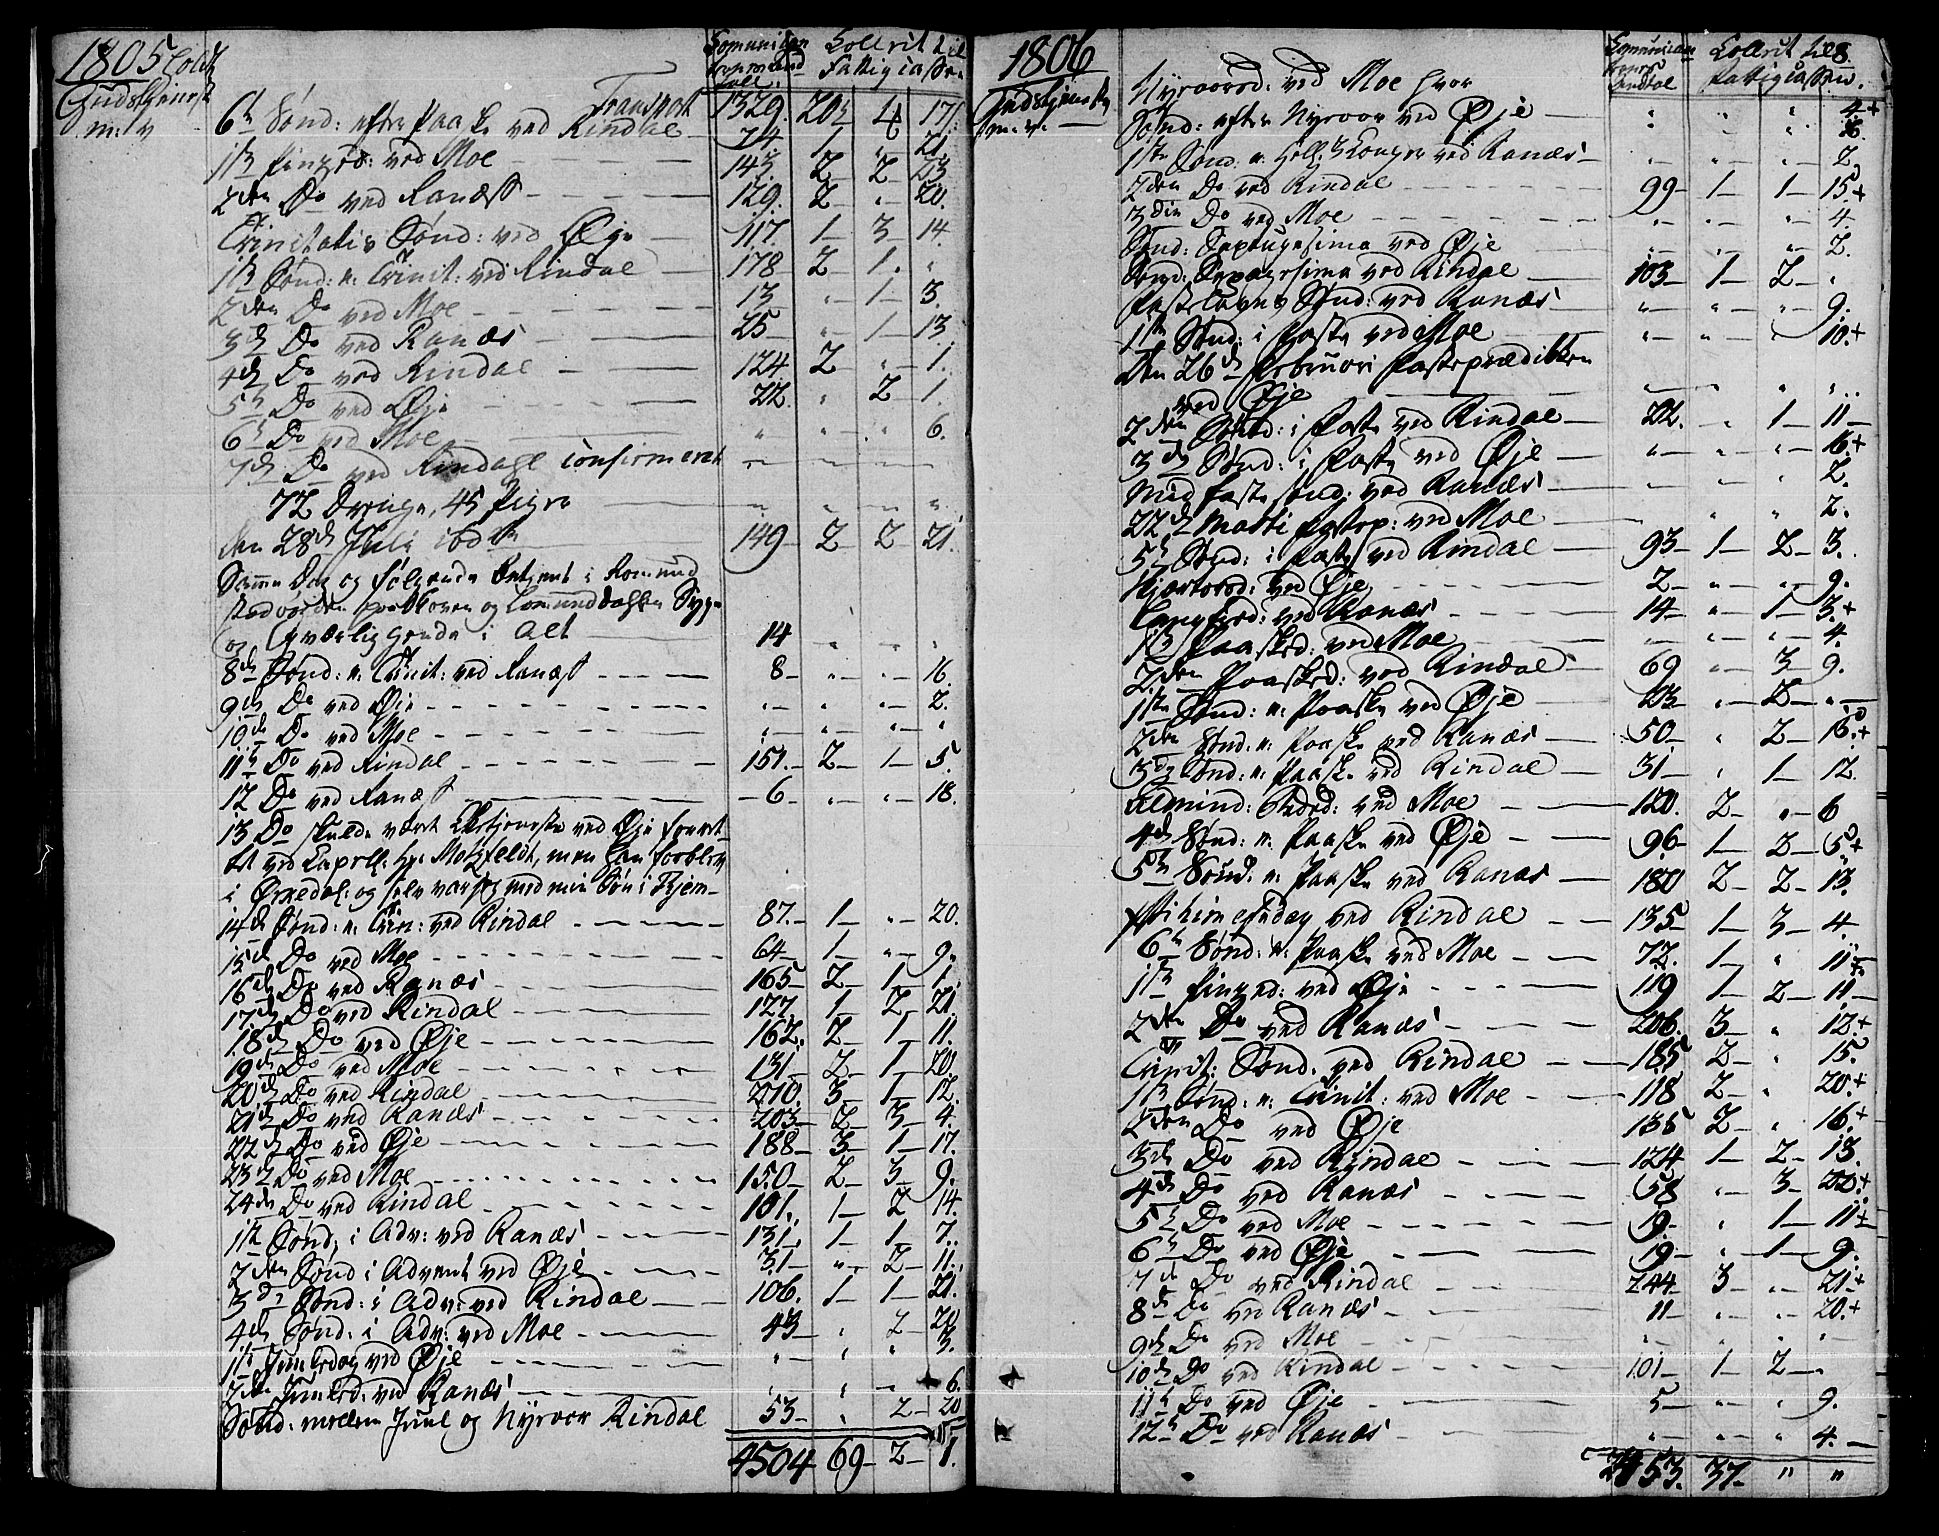 1805 holdt Comunicanternes Antall. Collect til Fattigcassen
Gudstjeneste m: v Transport 1329. 20 4 17
6te Sønd: efter Paaske ved Rindal 74 1 " 21
1ste Pinged: ved Moe 143. 2 2 23
2den Do ved Ranæss 129. 2 " 20.
Trinitatis Sønd: ved Øye 117. 1 3 14.
1ste Sønd: e: Trinit: ved Rindal 178 2 1. "
2den Do ved Moe 13 " 1 3.
3de Do ved Ranæs 25 " 1 13
4de Do ved Rindal 124 2 " 1.
5te Do ved Øje 22. " 2 1.
6te Do ved Moe " " " 6.
7de Do ved Rindahl confirmeret
72 Drenge, 45 Piger
den 28de Juli ibdm 149 2 2 21.
Samme Dag og følgende betjent i Romund
stad og Lomunddahlen Syge
og i Alt 14 " " "
8de Sønd: e: Trinit: ved Ranæss 8 " " 16.
9de Do ved Øje " " " 2.
10de Do ved Moe " " " "
11te Do ved Rindal 151. 2 1 5.
12 Do ved Ranæss 6 " " 18.
13 Do skulde været ved Øje forret
tet ved Capell: hr: Motzfeldt, men han forblev
i Ørkedal: og selv var jeg med min Søn i Thjem
14de Sønd: e: Trin: ved Rindal 87. 1 " 20.
15de Do ved Moe 64 1 " 9.
16de Do ved Ranæs 165 2 1 1.
17de Do ved Rindal 127. 1 2 21.
18de Do ved Øje 162. 2 1 11.
19de Do ved Moe 131. 2 1 20.
20de Do ved Rindal 210. 3 1 12.
21de Do ved Ranæs 203 2 3 4.
22de Do ved Øje 188 3 1 17.
23de Do ved Moe 150 2 3 9.
24de Do ved Rindal 101. 1 2 14.
1ste Sønd: i Adv: ved Ranæs 131. 1 1 7.
2den Sønd i Advent ved Øje 31 " 2 11.
3die Sønd: i Adv: ved Rindal 106. 1 1 21.
4de Sønd: i Adv: ved Moe 43 " 2 20
1ste Juuledag ved Øje " " " 3.
2den Juuled: ved Ranæs " " " 6.
Sønd: mellem Juul og Nyeaar Rindal 53 " 2 20
4504 69 2 1.
1806 Comunicanternes Antal Collect til Fattigcassen.
Gudstjeneste m. v. Nyeaarsd: ved Moe
Sønd: efter Nyeaar ved Øje " " " 16
1ste Sønd: e: Hell: 3 Konger ved Ranæs " " " 2.
2den Do ved Rindal 99 1 1 15+
3die Do ved Moe " " " 4.
Sønd: Septuagesima ved Øje " " " 2.
Sønd: Sexagesima ved Rindal 103 1 2 "
Fastelavns Sønd: ved Ranæs " " " 9.
1ste Sønd: i Faste ved Moe " " " 10.+
den 26de Februari Fasteprædikken
ved Øje " " " "
2den Sønd: i Faste ved Rindal 22. " 1 11
3de Sønd: i Faste ved Øje " " " 16+
Midfaste sønd: ved Ranæs " " " 2.
22de Martii Fastep: ved Moe " " " 2.
5te Sønd: i Faste ved Rindal 93 1 2 3.
Skjærtorsd: ved Øje 2 " " 9.
Langfred: ved Ranæs 14 " 1 3.+
1ste Paasked: ved Moe " " " 4.
2den Paasked: ved Rindal 69 " 3 9.
1ste Sønd: e: Paaske ved Øje 23 " 2 "
2den Sønd: e: Paaske ved Ranæs 50 " 2 16.+
3de Sønd: e: Paaske ved Rindal 31 " 1 12
Almind: Beded: ved Moe 120. 2 " 6
4de Sønd: e: Paaske ved Øje 96 1 2 5+
5te Sønd: e: Paaske ved Ranæs 180 2 2 13.
Christi himelfrdag ved Rindal 135 1 3 4.
6te Sønd: e: Paaske ved Moe 72. 1 " 11+
1ste Pinged: ved Øje 119 1 2 11
2den Do ved Ranæs 206. 3 " 12.+
Trinit: Sønd. ved Rindal 185 2 " 15.
1ste Sønd: e: Trinit: ved Moe 118 2 " 20.+
2den Do ved Øje 135 2 " 16.+
3de Do ved Rindal 124 1 2 13.
4de Do ved Ranæs 58 " 3 20.+
5te Do ved Moe 19. " 1 11+
6te Do ved Øje 19 " 1 9.
7de Do ved Rindal 244 3 " 21+
8de Do ved Ranæs 11 " " 20.+
9de Do ved Moe " " " "
10de Do ved Rindal 101 1 2 "
11te Do ved Øje 5 " " 9.
12te Do ved Ranæs " " " 4.
2453. 37. " "